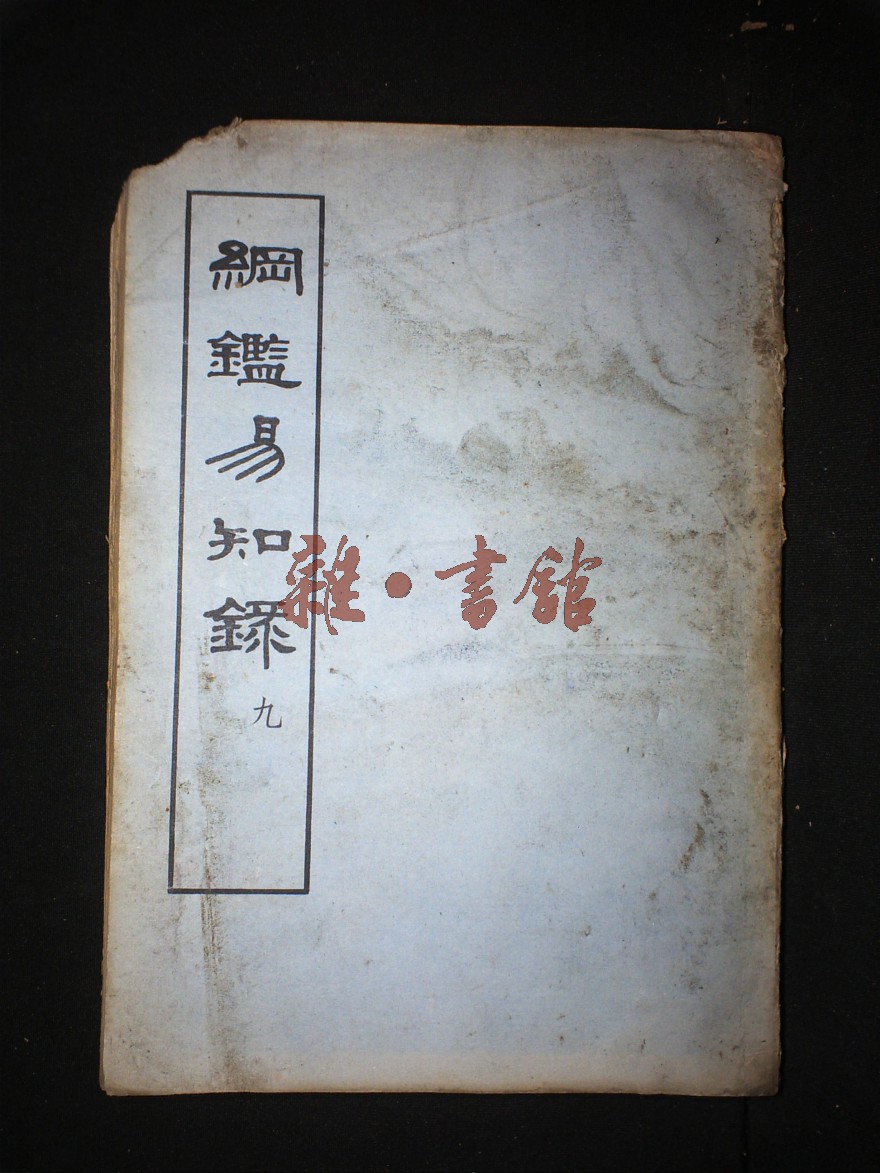 綱鑑易知録
九
雜·書館